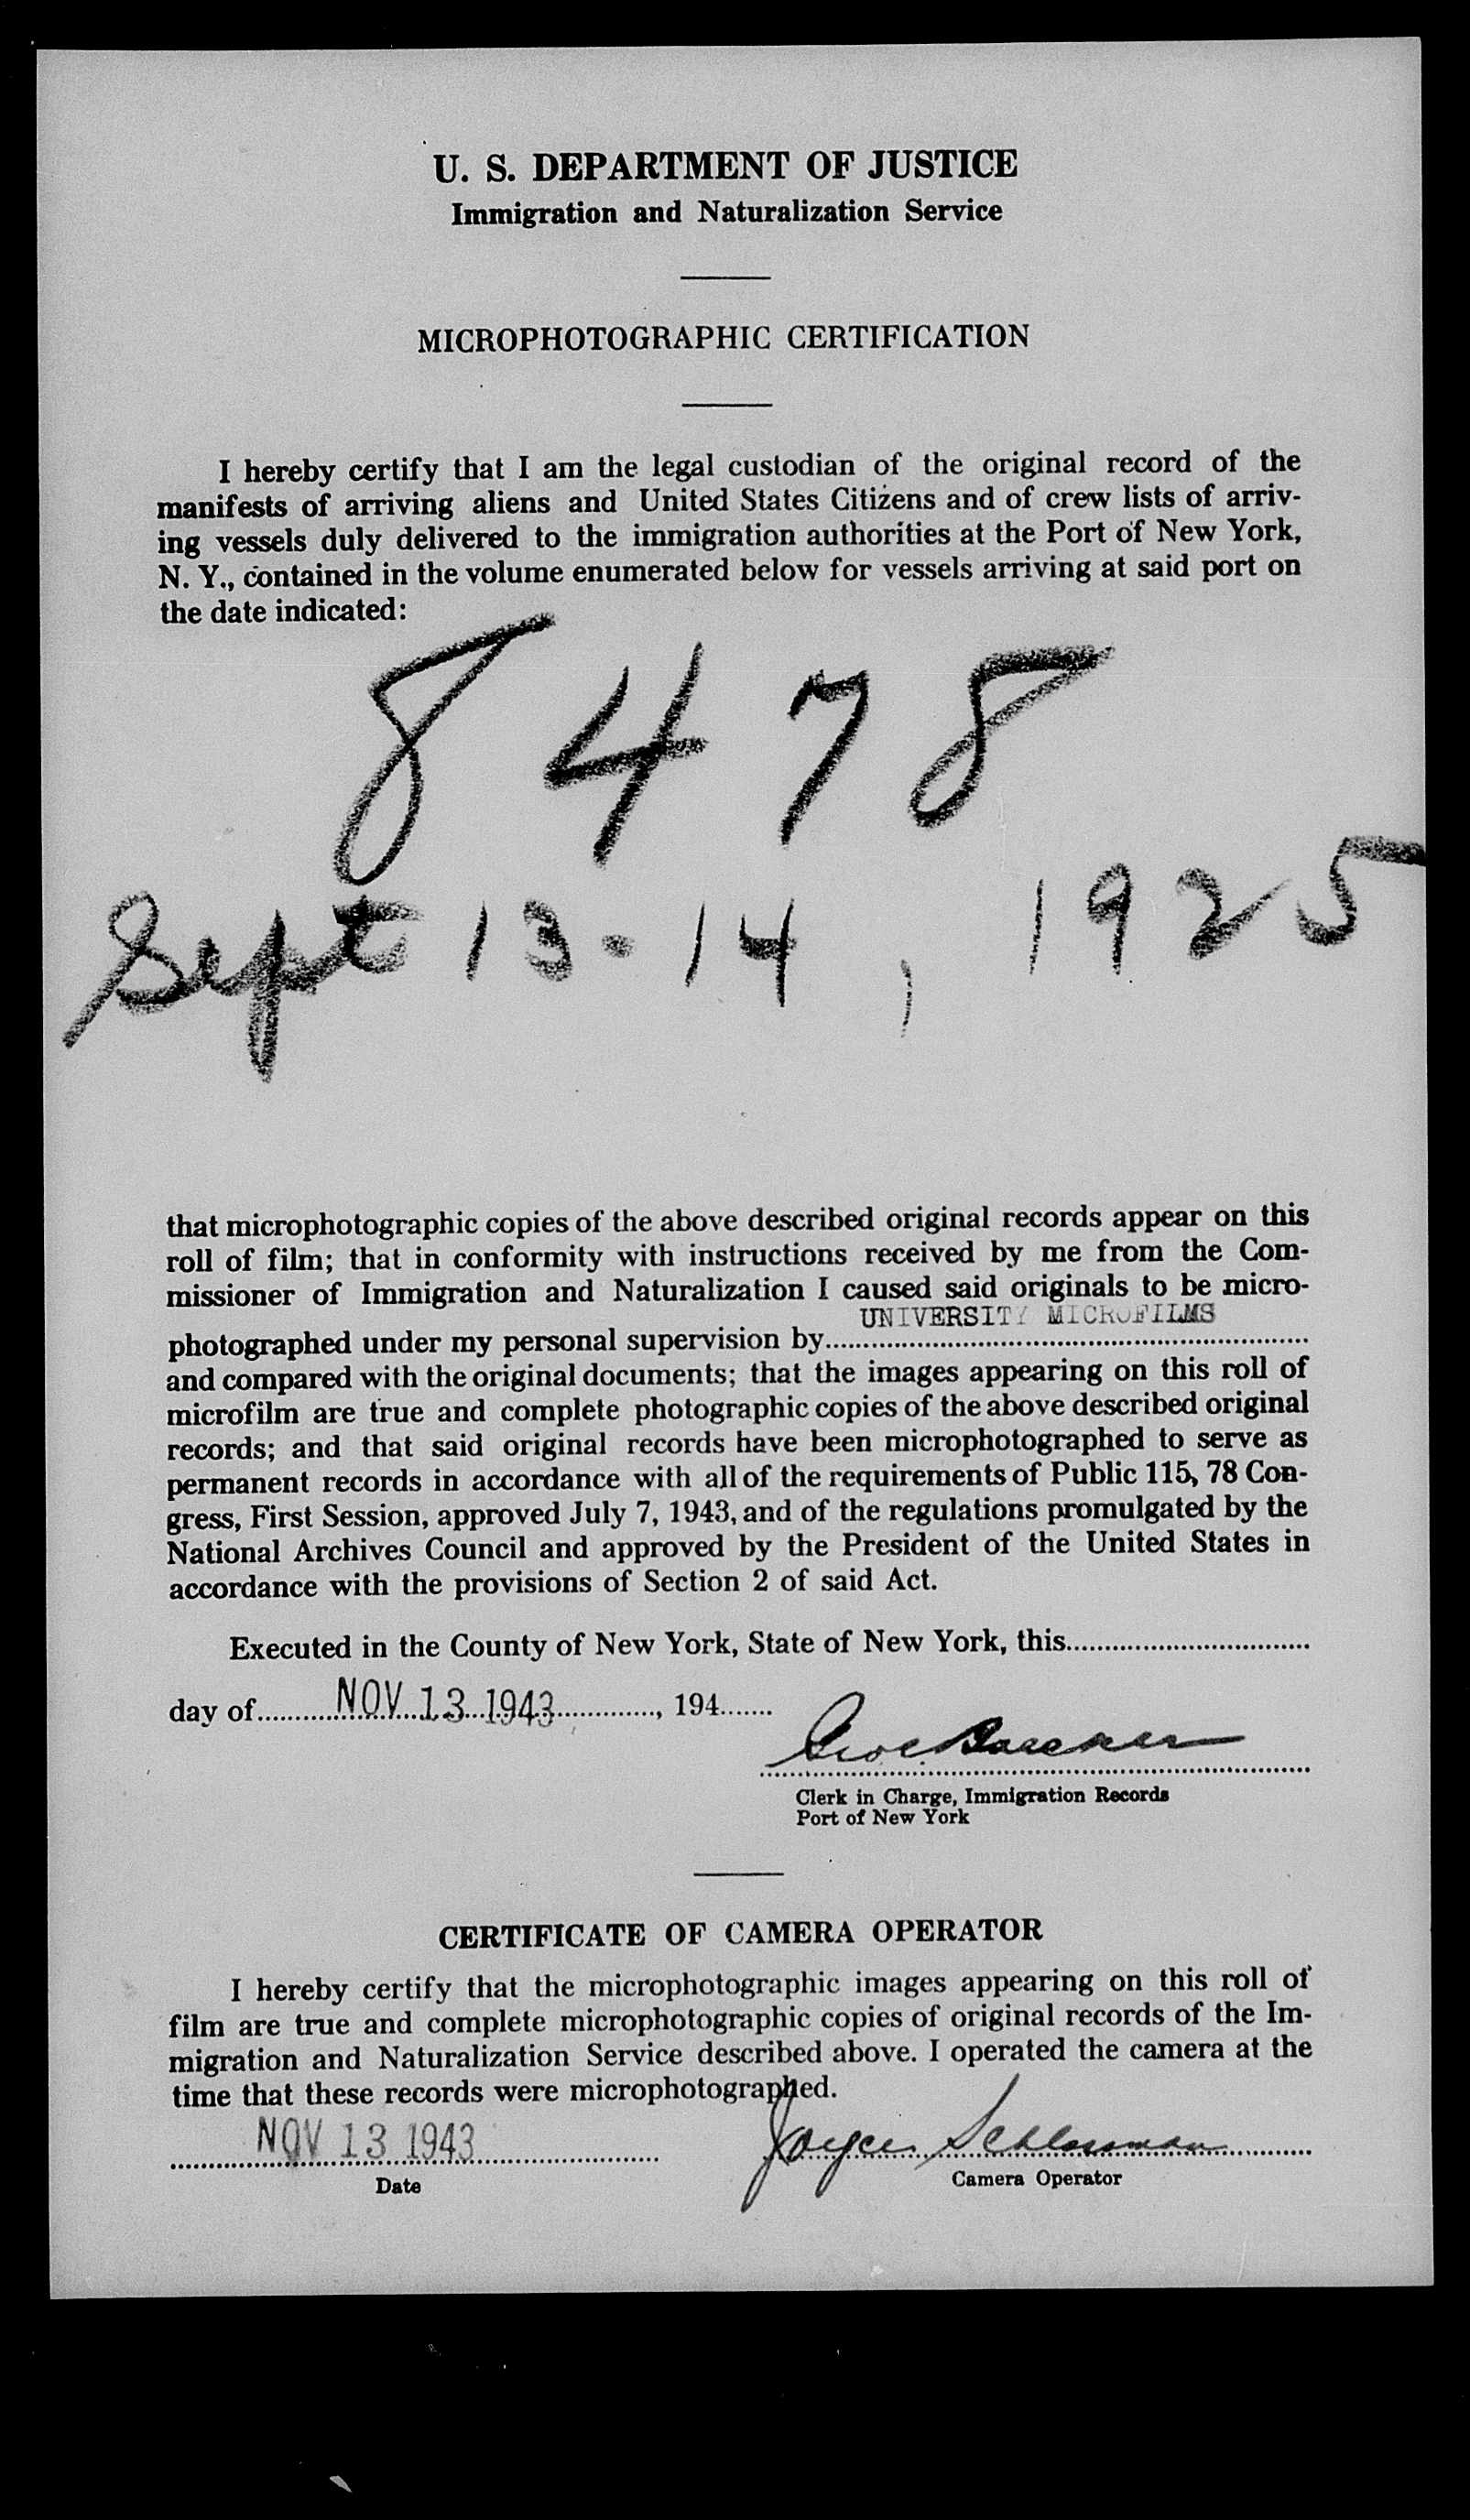 U. S. DEPARTMENT OF JUSTICE
Immigration and Naturalization Service
MICROPHOTOGRAPHIC CERTIFICATION
I hereby certify that I am the legal custodian of the original record of the
manifests of arriving aliens and United States Citizens and of crew lists of arriv-
ing vessels duly delivered to the immigration authorities at the Port of New York,
N. Y., contained in the volume enumerated below for vessels arriving at said port on
the date indicated:
8478
Sept 13-14, 1925
that microphotographic copies of the above described original records appear on this
roll of film; that in conformity with instructions received by me from the Com-
missioner of Immigration and Naturalization I caused said originals to be micro-
UNIVERSITY MICROFILMS
photographed under my personal supervision by
and compared with the original documents; that the images appearing on this roll of
microfilm are true and complete photographic copies of the above described original
records; and that said original records have been microphotographed to serve as
permanent records in accordance with all of the requirements of Public 115, 78 Con-
gress, First Session, approved July 7, 1943, and of the regulations promulgated by the
National Archives Council and approved by the President of the United States in
accordance with the provisions of Section 2 of said Act.
Executed in the County of New York, State of New York, this
day of NOV 13 1943, 194
Clerk in Charge, Immigration Records
Port of New York
CERTIFICATE OF CAMERA OPERATOR
I hereby certify that the microphotographic images appearing on this roll of
film are true and complete microphotographic copies of original records of the Im-
migration and Naturalization Service described above. I operated the camera at the
time that these records were microphotographed.
NOV 13 1943 Joyce Schlossman
Date Camera Operator